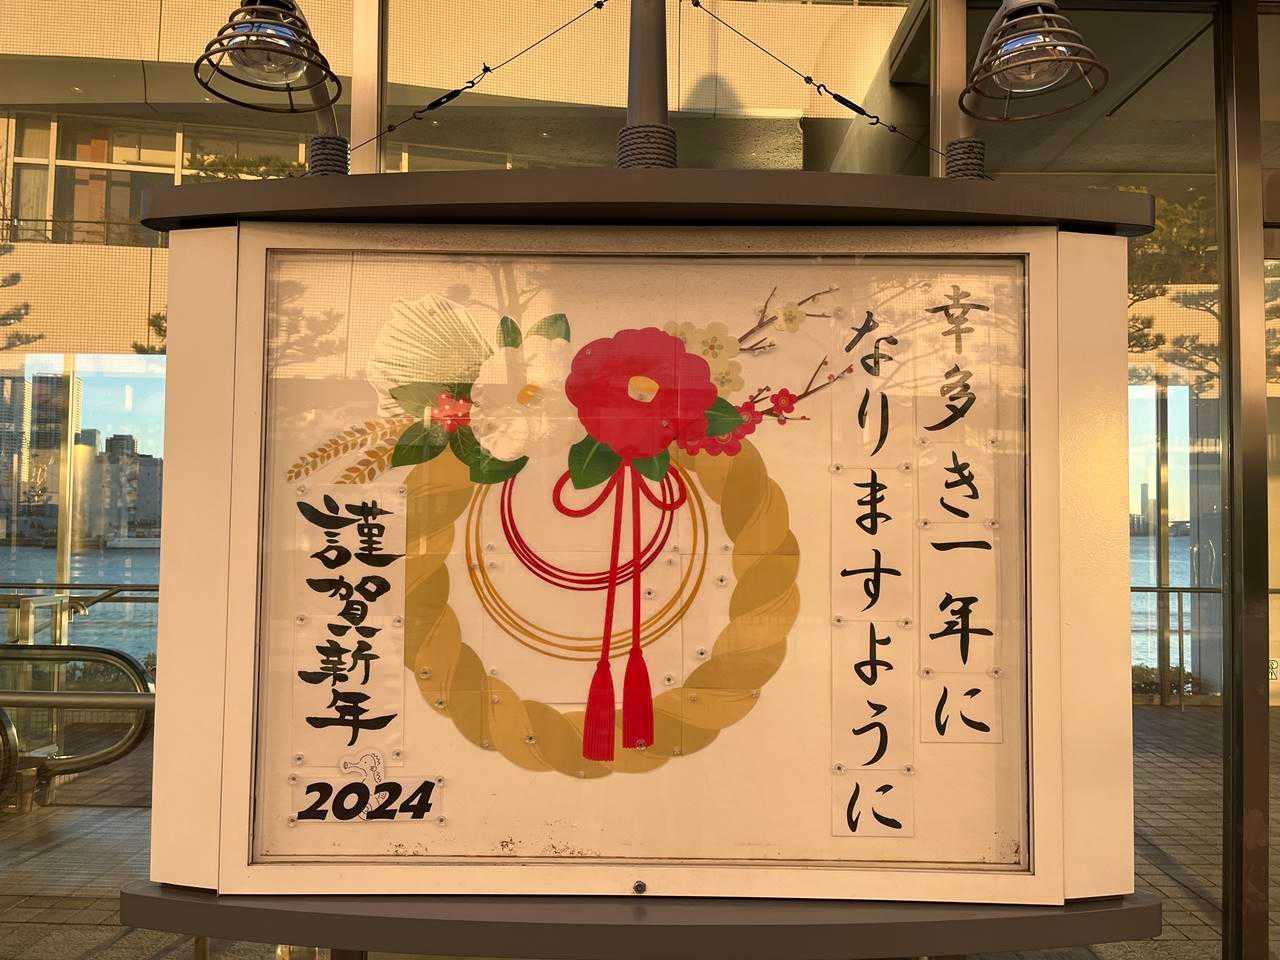 幸多き一年に
なりますように
謹賀新年
2024